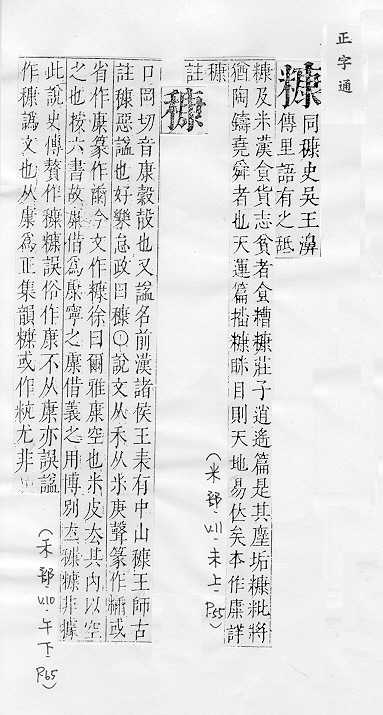 正字通
糠
同穅史吳王濞
傳里語有之䑛
糠及米漢食貨志貧者食糟糠莊子逍遙篇是其塵垢糠粃將
猶陶鑄堯舜者也天運篇播糠眯目則天地易位矣本作穅詳
穅
註
(米部 V.11 未上 P55)
穅
口岡切音康穀殼也又諡名前漢諸侯王表有中山穅王師古
註穅惡諡也好樂怠政曰穅○說文从禾从米庚聲篆作或
省作康篆作今文作糠徐曰爾雅康空也米皮去其內以空
之也按六書故穅借爲康寧之康借義之用博別立穅糠非據
此說史傳贊作穅糠誤俗作康不从康亦誤諡
作穅譌文也从康爲正集韻糠或作粇尤非
(禾部 V.10 午下 P65)